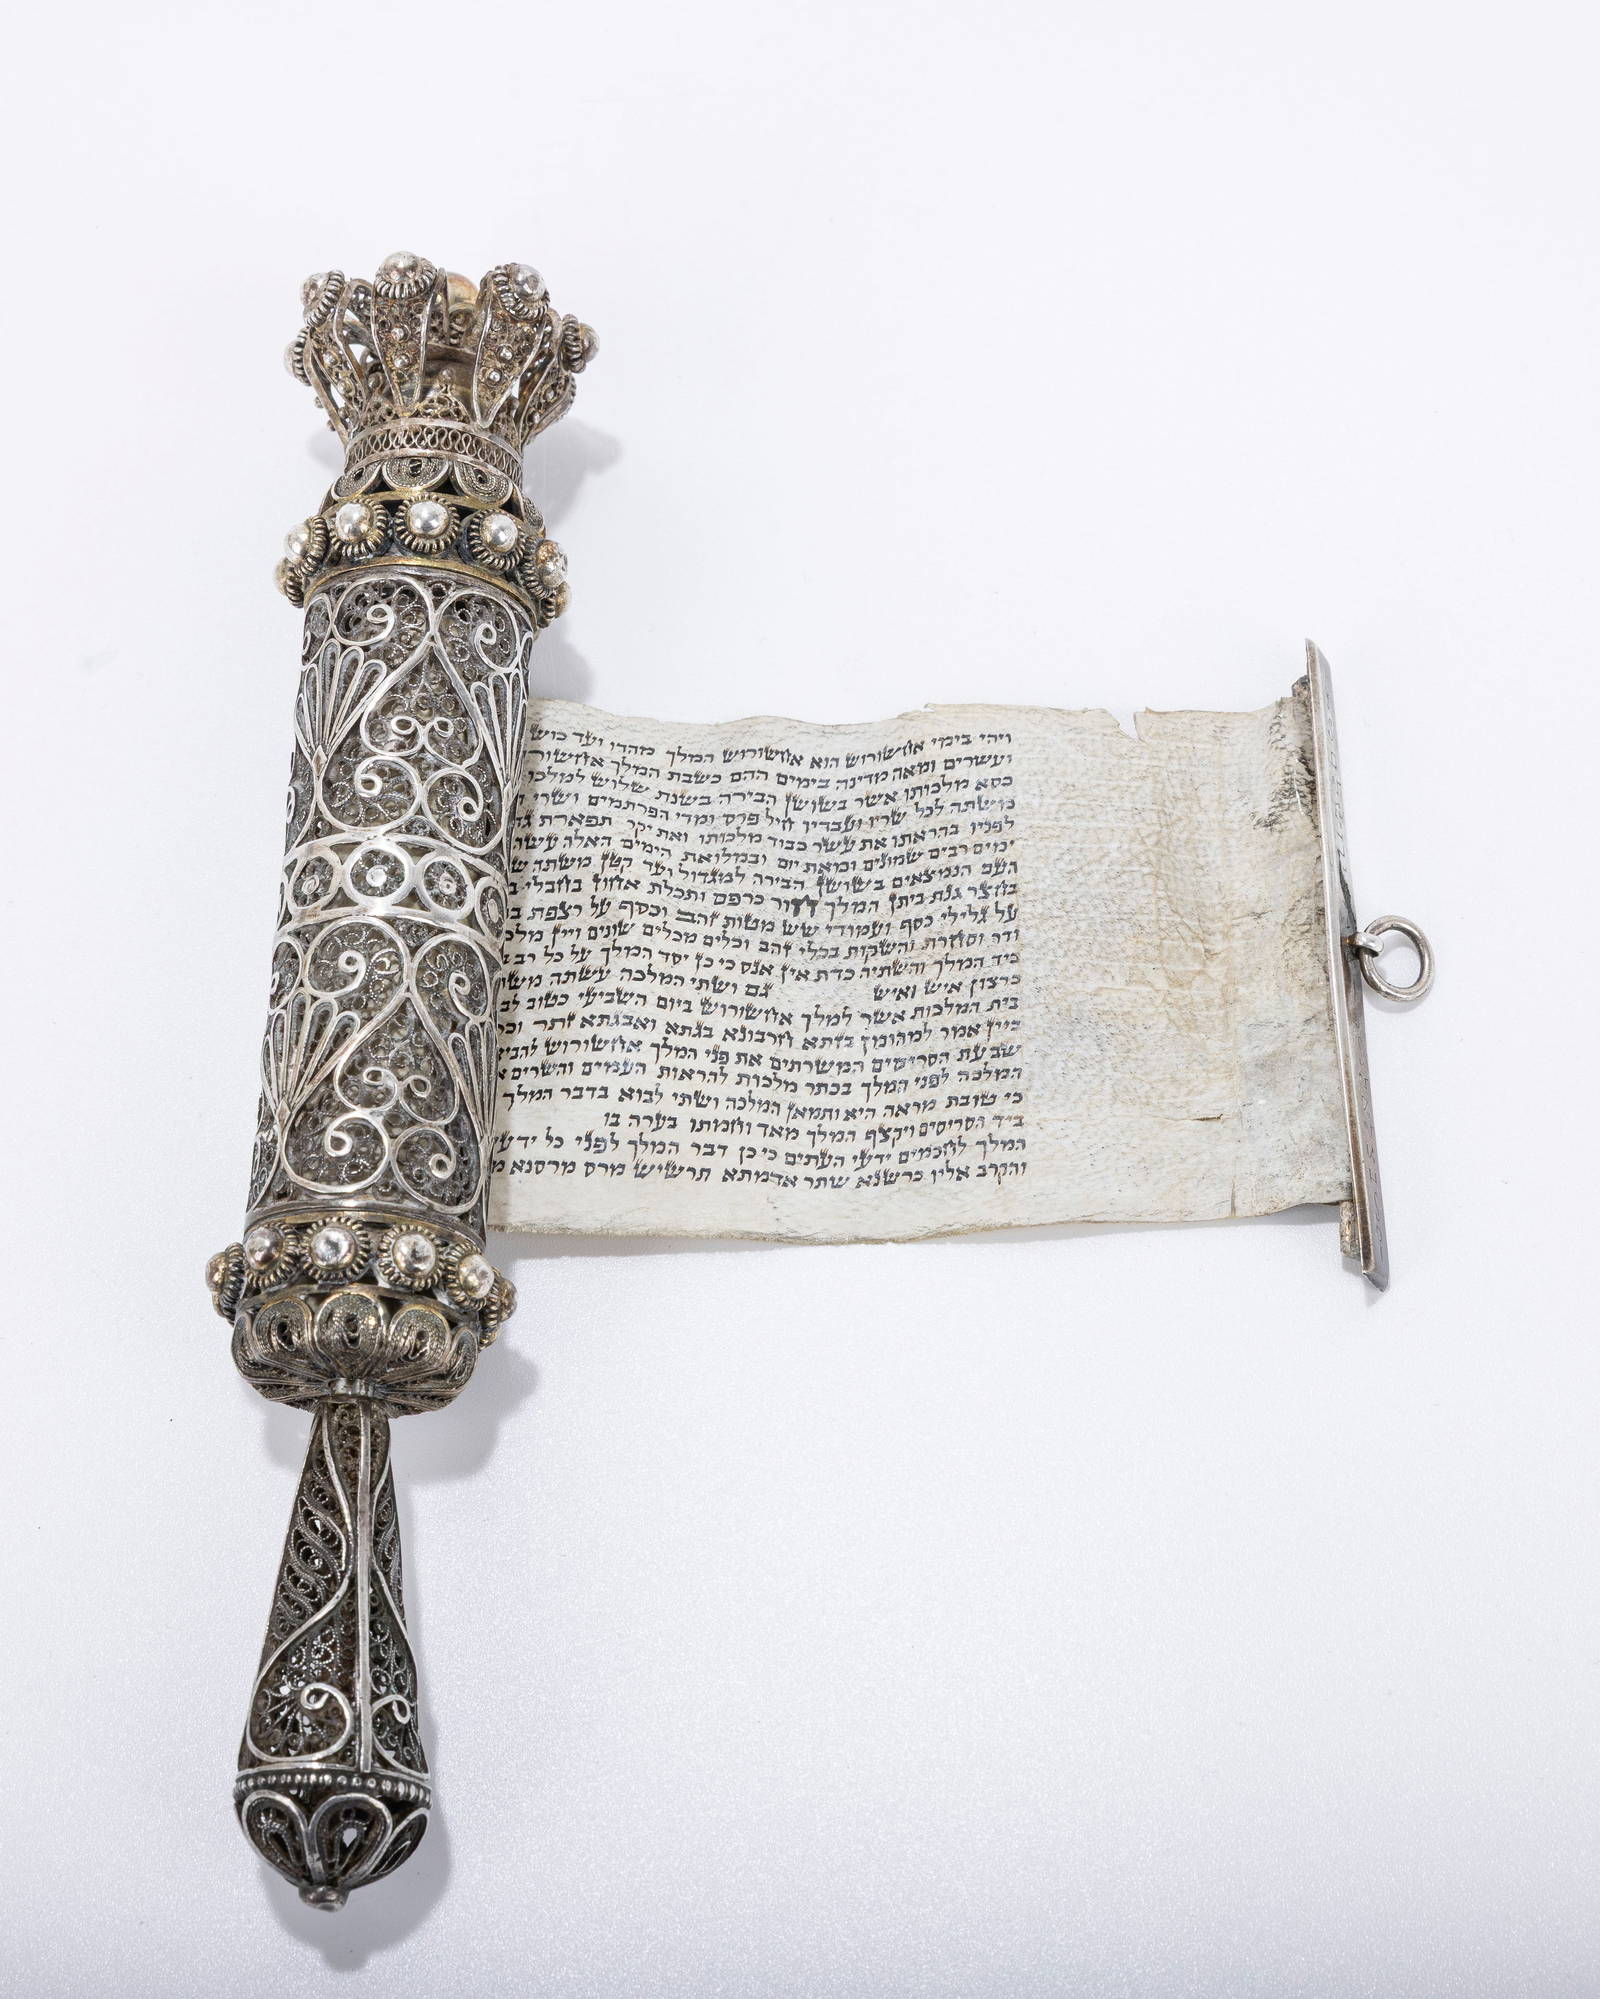 ויהי בימי אחשורוש הוא אחשורוש המלך מהדו ועד כוש
ועשרים ומאה מדינה בימים ההם כשבת המלך אחשורו
כסא מלכותו אשר בשושן הבירה בשנת שלוש למלכו
משתה לכל שריו ועבדיו חיל פרס ומדי הפרתמים ושרי
לפניו בהראתו את עשר כבוד מלכותו ואת יקר תפארת גד
ימים רבים שמונים ומאת יום ובמלואת הימים האלה עשה
העם הנמצאים בשושן הבירה למגדול ועד קטן משתה ש
בחצר גנת ביתן המלך חור כרפס ותכלת אחוז בחבלי ב
על גלילי כסף ועמודי שש מטות זהב וכסף על רצפת ב
ודר וסחרת והשקות בכלי זהב וכלים מכלים שונים ויין מלכ
כיד המלך והשתיה כדת אין אנס כי כן יסד המלך על כל רב ב
כרצון איש ואיש גם ושתי המלכה עשתה משת
בית המלכות אשר למלך אחשורוש ביום השביעי כטוב לב
ביין אמר למהומן בזתא חרבונא בגתא ואבגתא זתר וכר
שבעת הסריסים המשרתים את פני המלך אחשורוש להביא
המלכה לפני המלך בכתר מלכות להראות העמים והשרים א
כי טובת מראה היא ותמאן המלכה ושתי לבוא בדבר המלך
ביד הסריסים ויקצף המלך מאד וחמתו בערה בו
המלך לחכמים ידעי העתים כי כן דבר המלך לפני כל ידעי
והקרב אליו כרשנא שתר אדמתא תרשיש מרס מרסנא מ